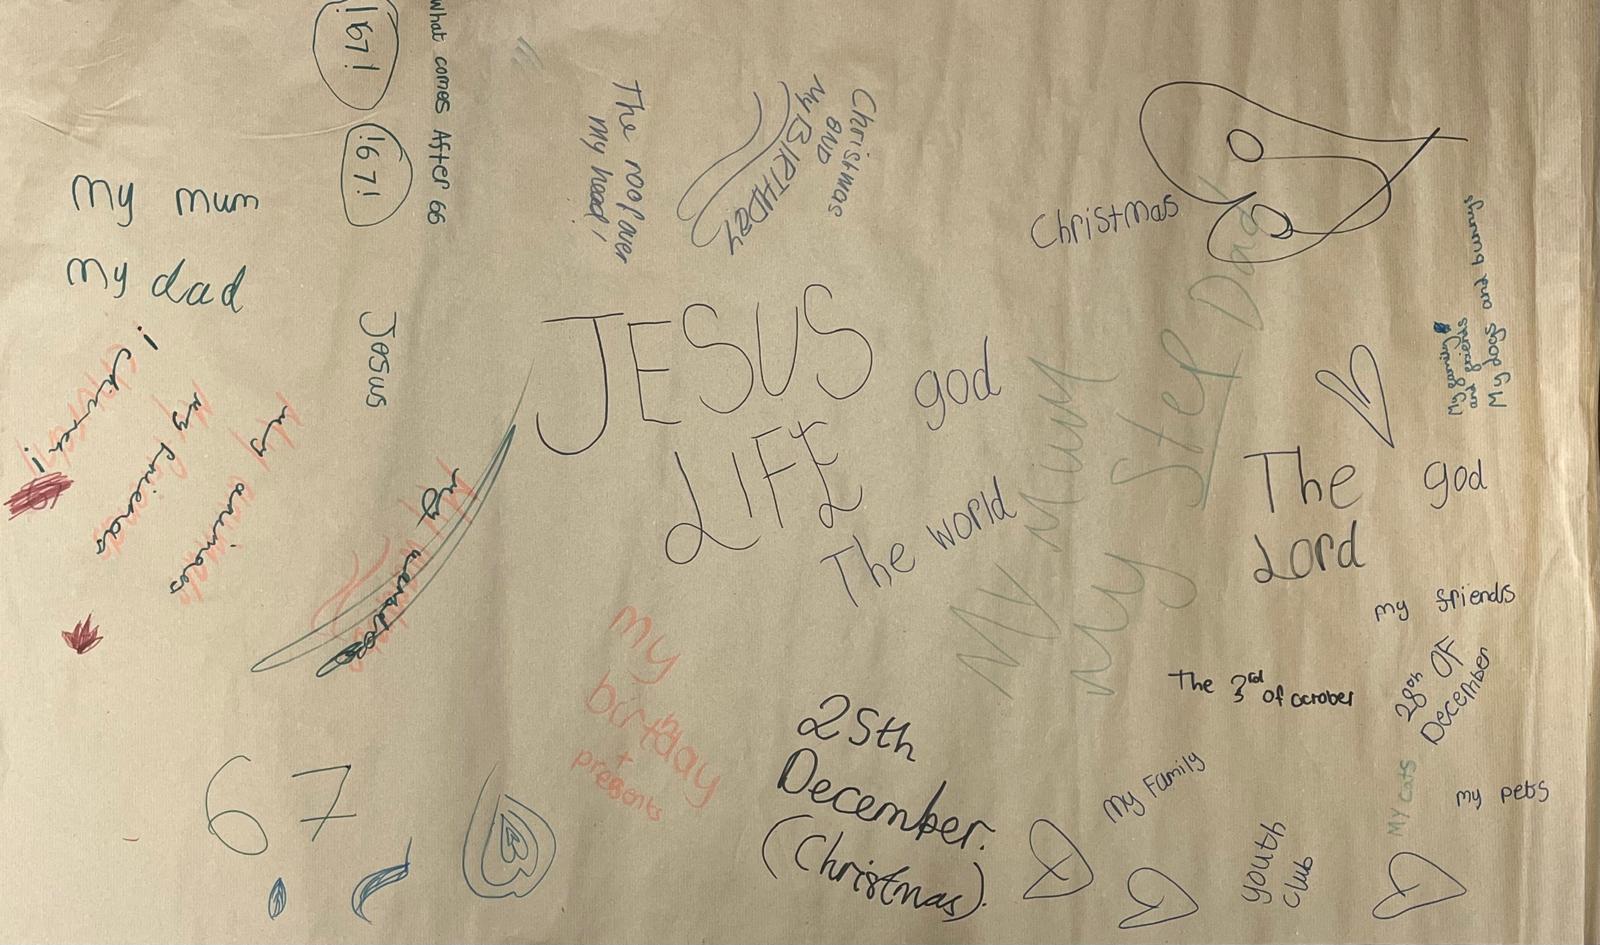 !67!
!67!
What comes After 66
My mum
My dad
Jesus
! church!
My friends
My animals
My
The roof over
my head!
Christmas
and
My BIRTHDAY
Christmas
JESUS
LIFE
god
The world
My Mum
My Step Dad
My family
and friends
My dogs and bunnys
The
Lord
god
my friends
The 3rd of october
28th OF
December
my birthday
+
presents
25th
December.
(Christmas).
My Family
youth
club
My cats
my pets
67